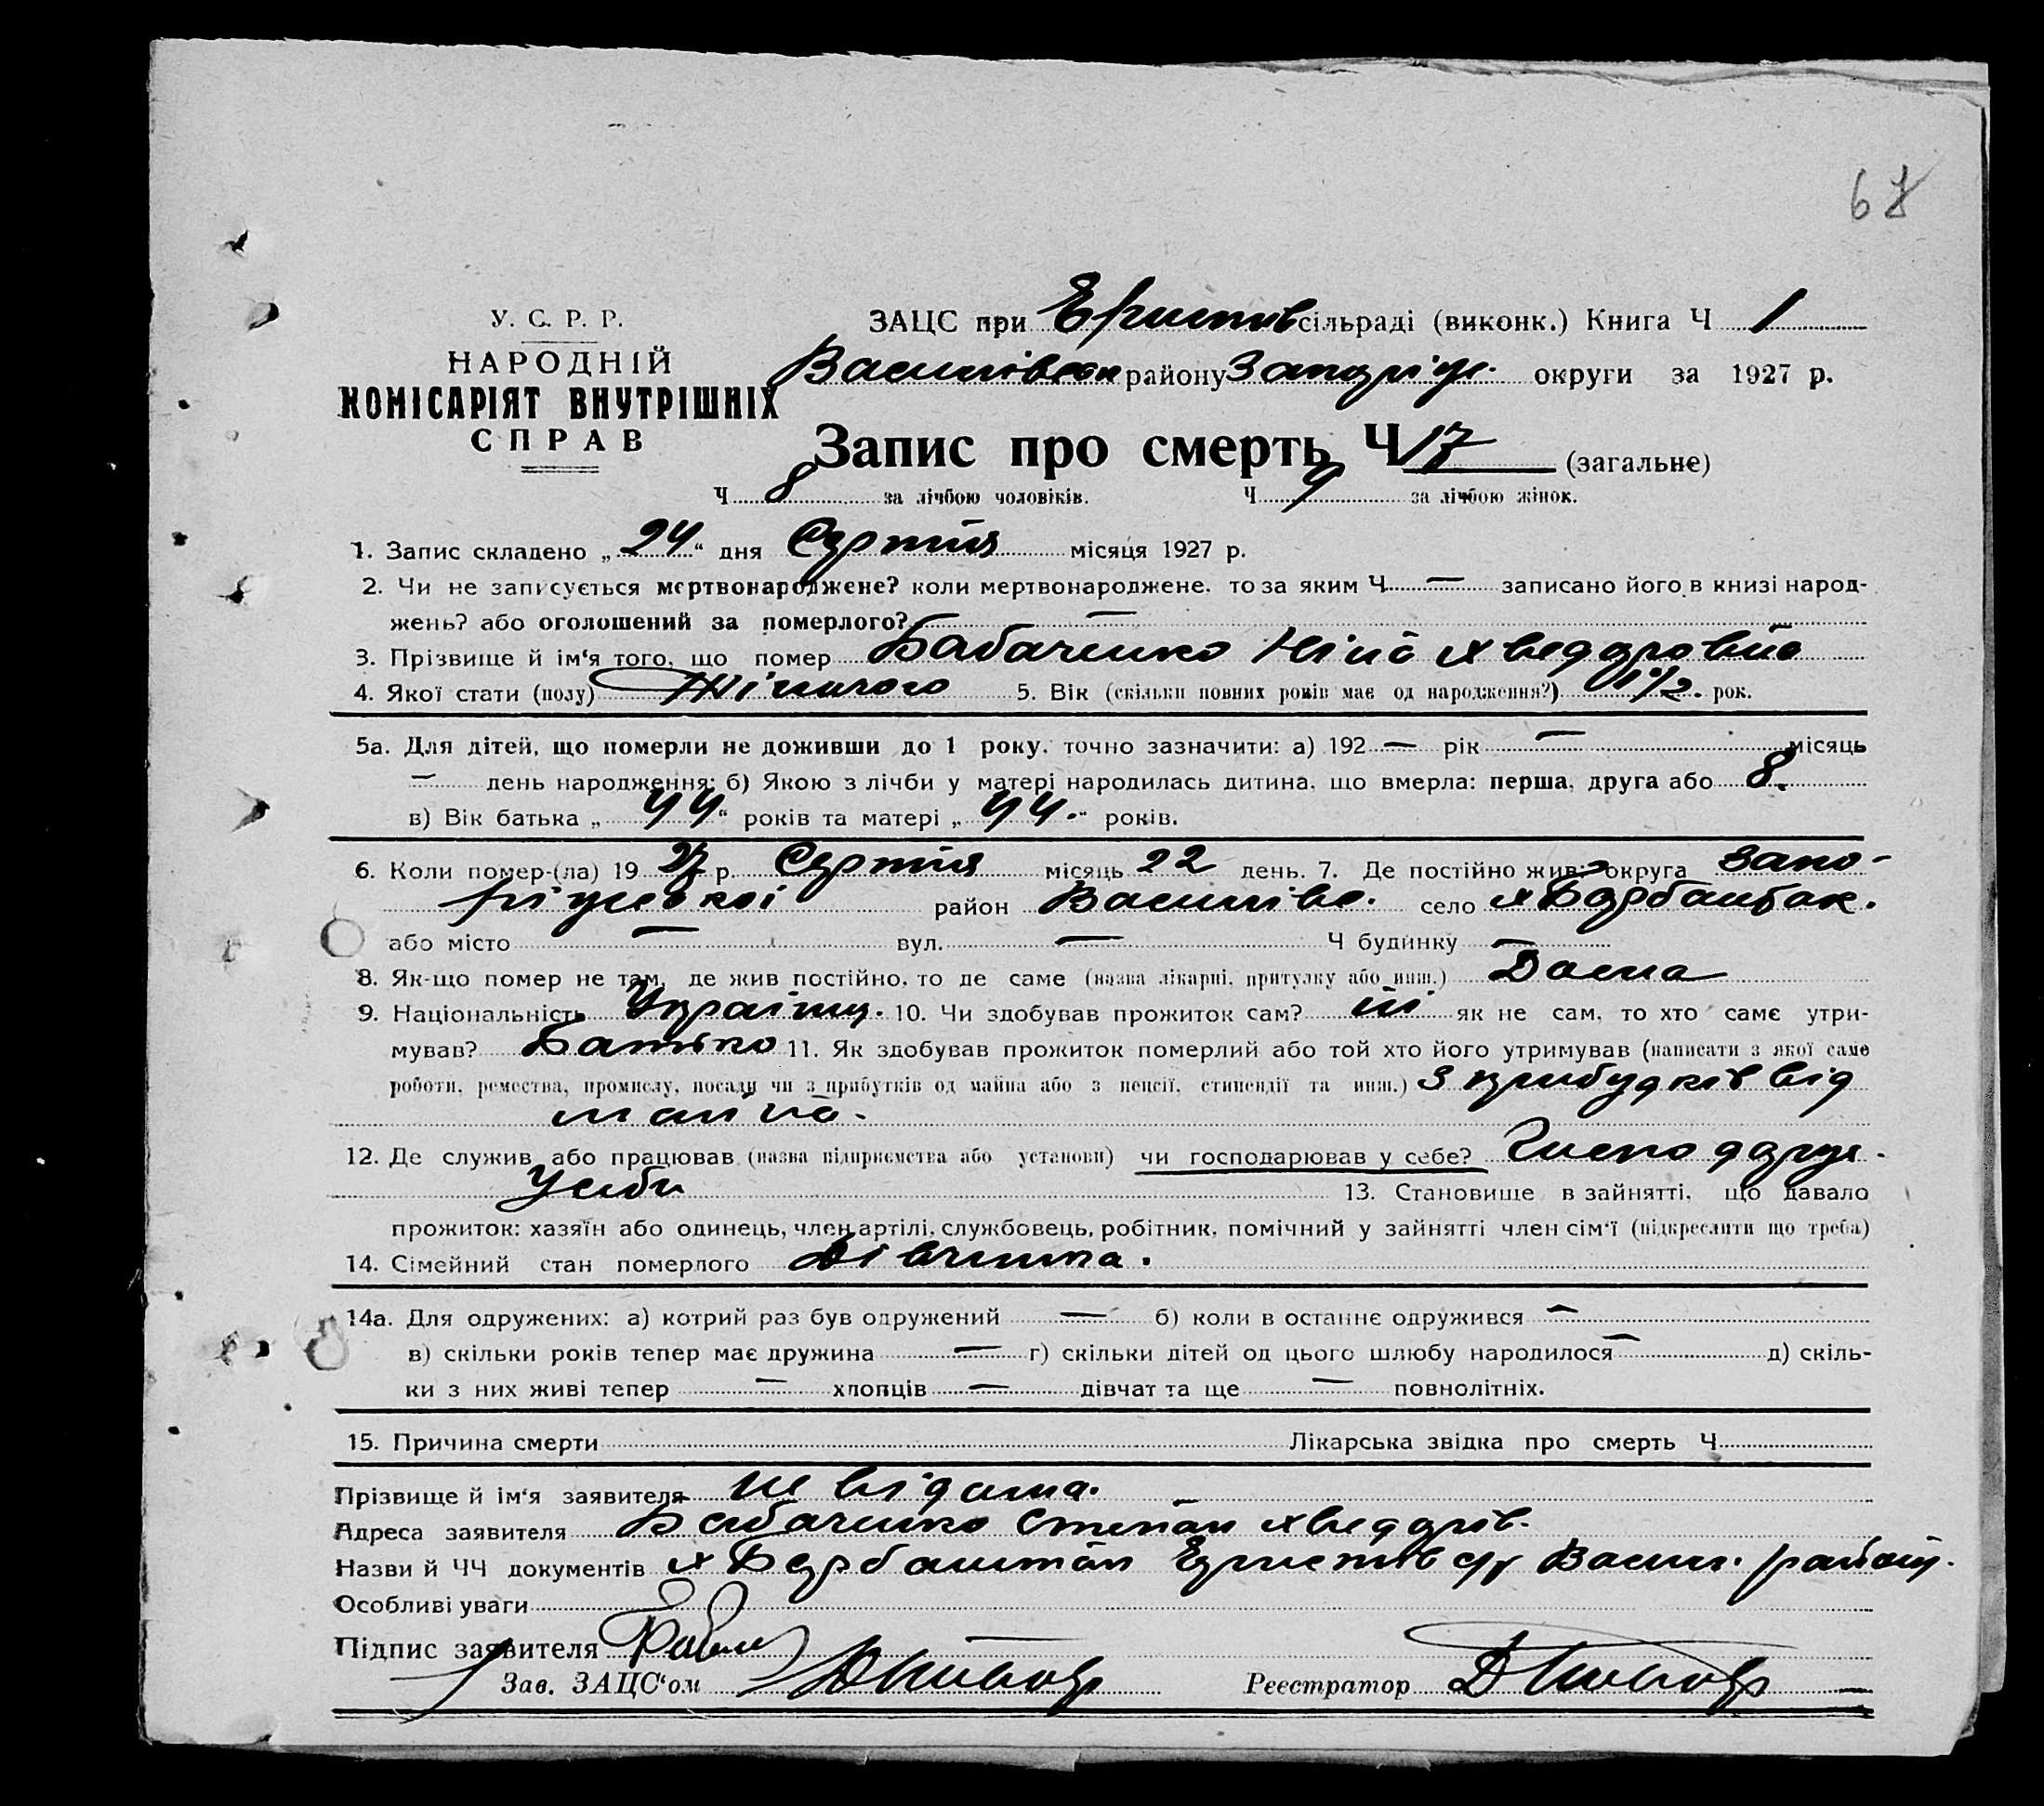 68
У. С. Р. Р.
НАРОДНІЙ
КОМІСАРІЯТ ВНУТРІШНІХ
СПРАВ
ЗАЦС при Еристов сільраді (виконк.) Книга Ч 1
Василівськ району Запоріж. округи за 1927 р.
Запис про смерть Ч 17 (загальне)
Ч 8 за лічбою чоловіків. Ч 9 за лічбою жінок.
1. Запис складено „24“ дня Серпня місяця 1927 р.
2. Чи не записується мертвонароджене? коли мертвонароджене, то за яким Ч — записано його в книзі народ-
жень? або оголошений за померлого? —
3. Прізвище й ім‘я того, що помер Бабаченко Ніна Хведоровна
4. Якої стати (полу) Жіночого 5. Вік (скільки повних років має од народження?) 1½. рок.
5а. Для дітей, що померли не доживши до 1 року, точно зазначити: а) 192 — рік — місяць
— день народження; б) Якою з лічби у матері народилась дитина, що вмерла: перша, друга або 8.
в) Вік батька „44“ років та матері „44.“ років.
6. Коли помер-(ла) 19 27 р. Серпня місяць 22 день. 7. Де постійно жив: округа Запо-
ріжської район Василівс. село х
або місто — вул. — Ч будинку —
8. Як-що помер не там, де жив постійно, то де саме (назва лікарні, притулку або инш.) Дома
9. Національність Україн. 10. Чи здобував прожиток сам? ні як не сам, то хто саме утри-
мував? Батько 11. Як здобував прожиток померлий або той хто його утримував (написати з якої саме
роботи, ремества, промислу, посади чи з прибутків од майна або з пенсії, стипендії та инш.) З прибудків від
майна.
12. Де служив або працював (назва підприємства або установи) чи господарював у себе? Господарує.
У себи 13. Становище в зайнятті, що давало
прожиток: хазяїн або одинець, член артілі, службовець, робітник, помічний у зайнятті член сім‘ї (підкреслити що треба)
14. Сімейний стан померлого Дівчинка.
14а. Для одружених: а) котрий раз був одружений — б) коли в останнє одружився —
в) скільки років тепер має дружина — г) скільки дітей од цього шлюбу народилося — д) скіль-
ки з них живі тепер — хлопців — дівчат та ще — повнолітніх.
15. Причина смерти Лікарська звідка про смерть Ч
Прізвище й ім‘я заявителя не відома.
Адреса заявителя Бабаченко Степан Хведорів.
Назви й ЧЧ документів х Еристов с/р Васил. район.
Особливі уваги
Підпис заявителя
Зав. ЗАЦС‘ом
Реєстратор